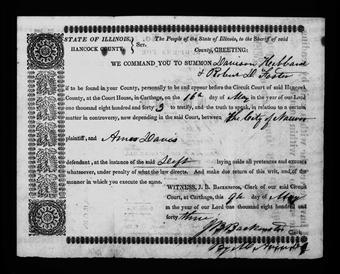 STATE OF ILLINOIS, The People of the State of Illinois, to the Sheriff of said
HANCOCK COUNTY. Sct. County, GREETING:
WE COMMAND YOU TO SUMMON Davison Hibbard
& Robert D. Foster
if to be found in your County, personally to be and appear before the Circuit Court of said Hancock
County, at the Court House, in Carthage, on the 16th day of May in the year of our Lord
one thousand eight hundred and forty 3 to testify, and the truth to speak, in relation to a certain
matter in controversy, now depending in the said Court, between The City of Nauvoo
plaintiff, and Amos Davis
defendant, at the instance of the said Deft laying aside all pretences and excuses
whatsoever, under penalty of what the law directs. And make due return of this writ, and of the
manner in which you execute the same.
WITNESS, J. B. BACKENSTOS, Clerk of our said Circuit
Court, at Carthage, this 9th day of May
in the year of our Lord one thousand eight hundred and
forty three
J B Backenstos Clerk
By